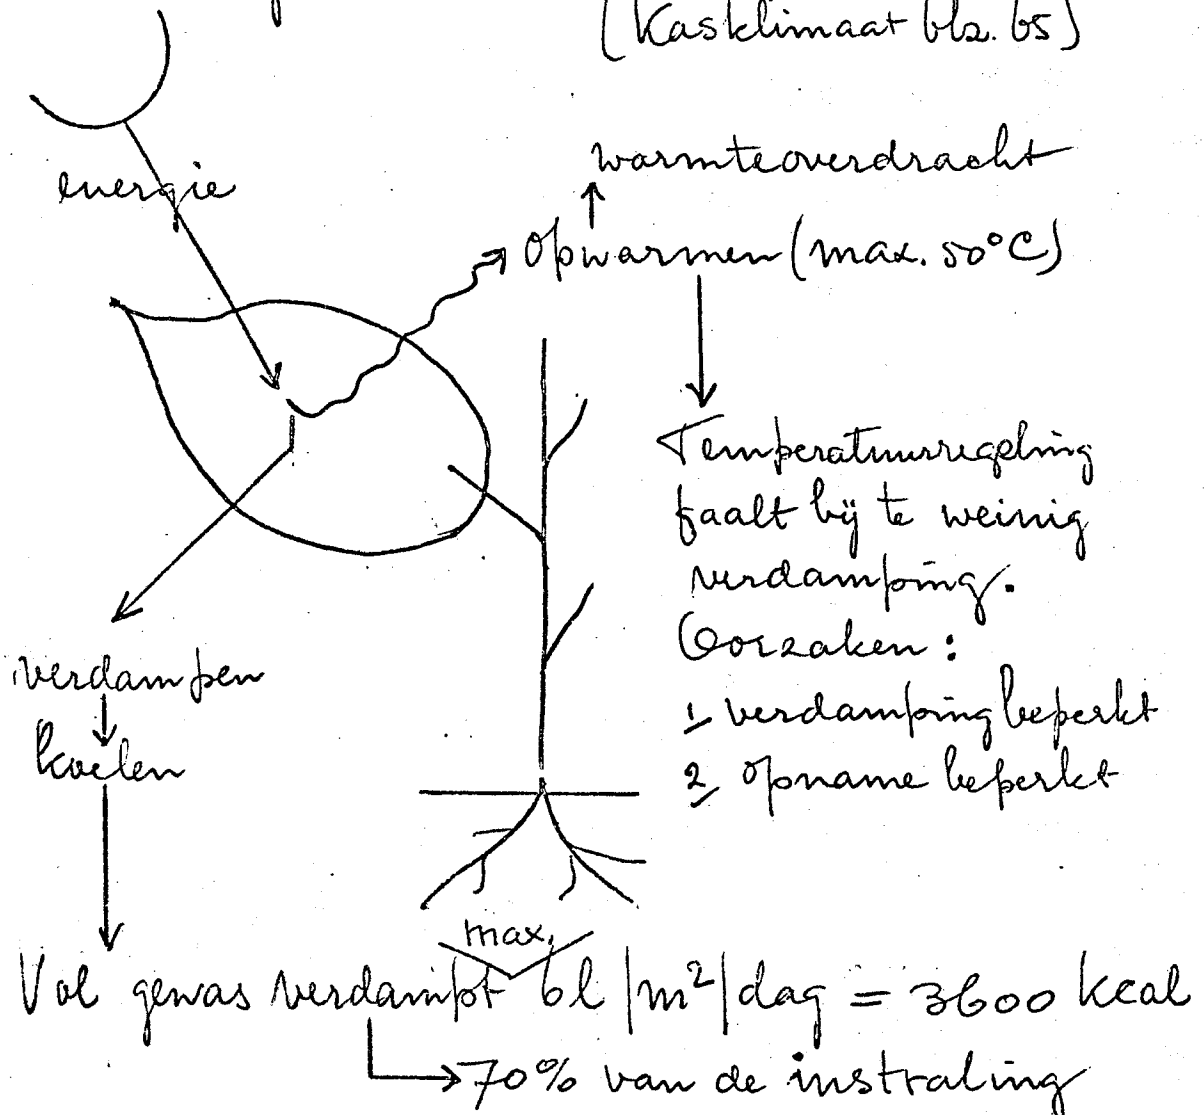 (Kasklimaat blz. 65)
energie
warmteoverdracht
Opwarmen (max. 50°C)
Temperatuurregeling
faalt bij te weinig
verdamping.
Oorzaken:
1 verdamping beperkt
2 opname beperkt
verdampen
koelen
max.
Vol gewas verdampt 6l/m²/dag = 3600 kcal
70% van de instraling